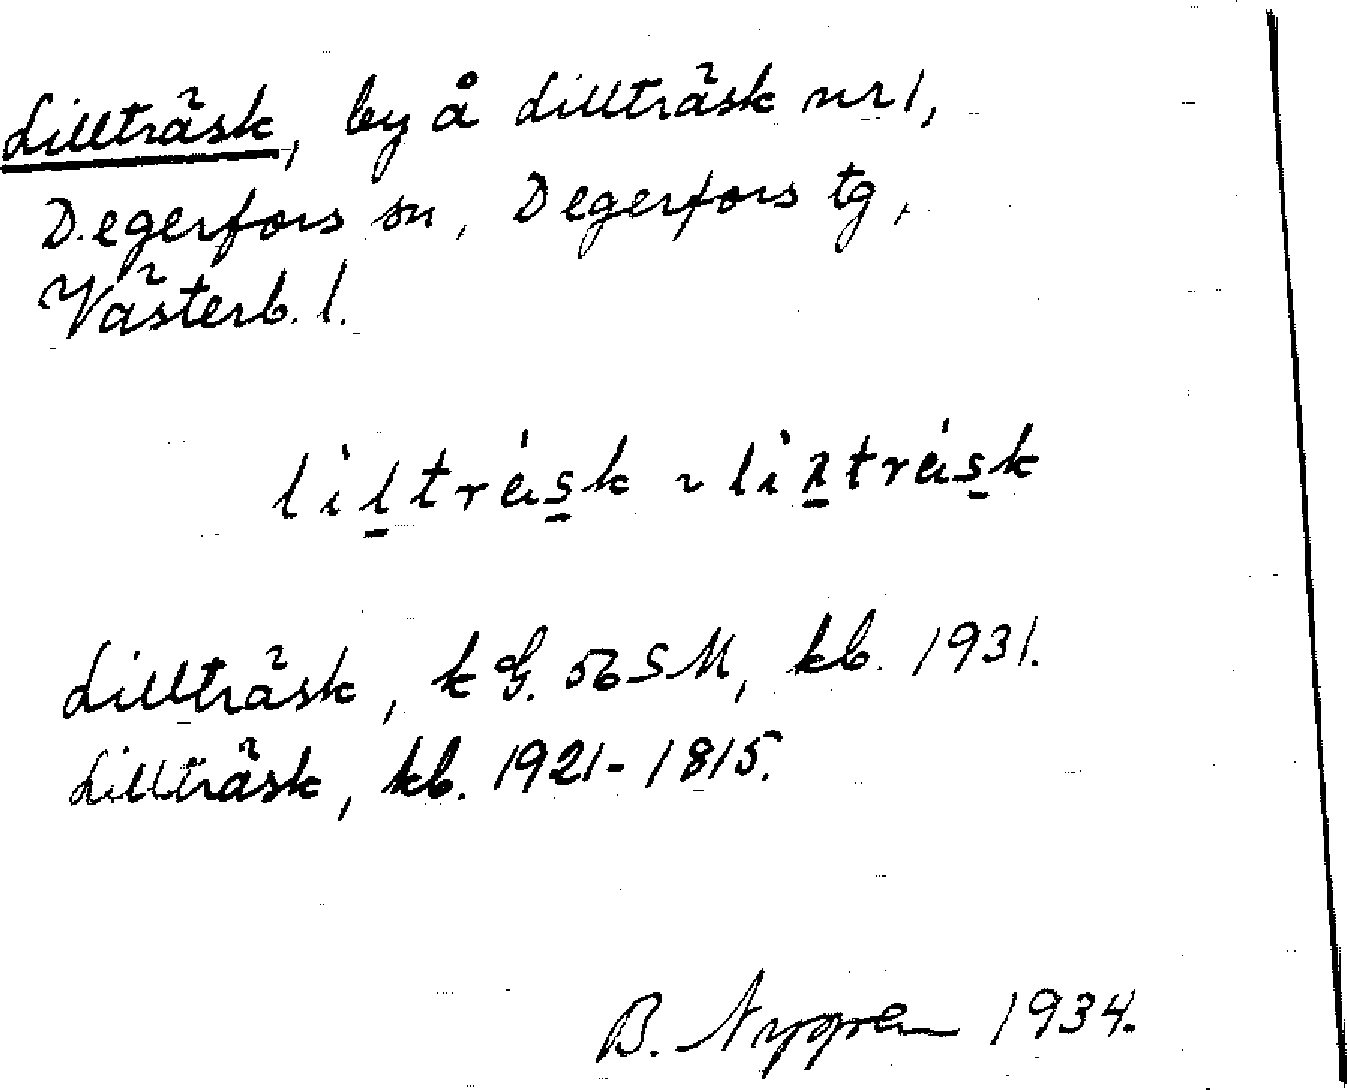 Lillträsk, by å Lillträsk nr 1,
Degerfors sn, Degerfors tg,
Västerb. l.
Lillträsk, k G. 56 SM, kb. 1931.
Lillträsk, kb. 1921-1815.
B. Nygren 1934.